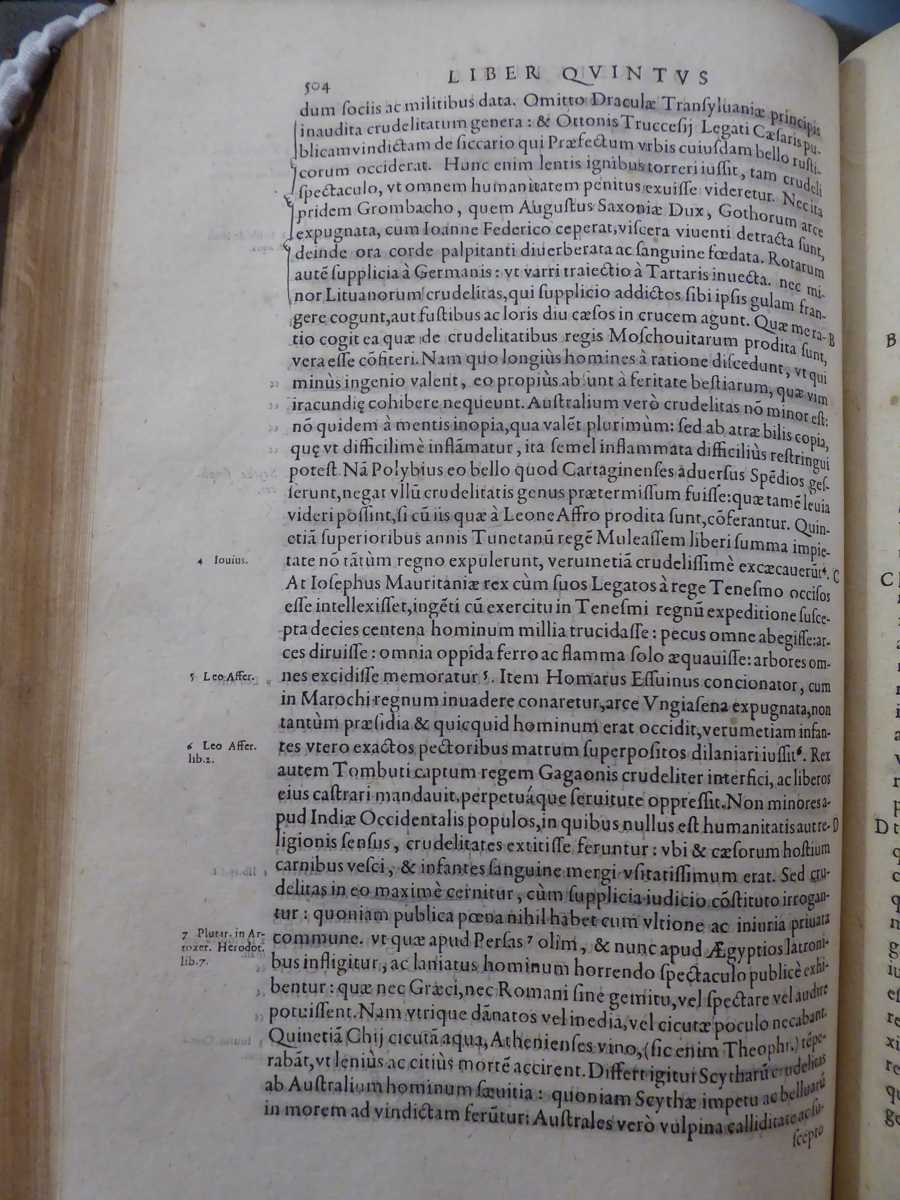 504
LIBER QVINTVS
dum ſociis ac militibus data. Omitto Draculæ Tranſyluaniæ principis
inaudita crudelitatum genera: & Ottonis Truccesij Legati Cæſaris pu-
blicam vindictam de ſiccario qui Præfectum vrbis cuiuſdam bello ruſti-
corum occiderat. Hunc enim lentis ignibus torreri iuſſit, tam crudeli
ſpectaculo, vt omnem humanitatem penitus exuiſſe videretur. Nec ita
pridem Grombacho, quem Auguſtus Saxoniæ Dux, Gothorum arce
expugnata, cum Ioanne Federico ceperat, viſcera viuenti detracta ſunt,
deinde ora corde palpitanti diuerberata ac ſanguine fœdata. Rotarum
autē ſupplicia à Germanis: vt varri traiectio à Tartaris inuecta. nec mi-
nor Lituanorum crudelitas, qui ſupplicio addictos ſibi ipſis gulam fran-
gere cogunt, aut fuſtibus ac loris diu cæſos in crucem agunt. Quæ me ra-
B
tio cogit ea quæ de crudelitatibus regis Moſchouitarum prodita ſunt,
vera eſſe cōfiteri. Nam quo longiùs homines à ratione diſcedunt, vt qui
minùs ingenio valent, eo propiùs abſunt à feritate beſtiarum, quæ vim
iracundię cohibere nequeunt. Auſtralium verò crudelitas nō minor eſt:
nō quidem à mentis inopia, qua valēt plurimùm: ſed ab atræ bilis copia,
quę vt difficilimè inflāmatur, ita ſemel inflammata difficiliùs reſtringui
poteſt. Nā Polybius eo bello quod Cartaginenſes aduerſus Spēdios geſ-
ſerunt, negat vllū crudelitatis genus prætermiſſum fuiſſe: quæ tamē leuia
videri poſſint, ſi cū iis quæ à Leone Affro prodita ſunt, cōferantur. Quin-
etiā ſuperioribus annis Tunetanū regē Muleaſſem liberi ſumma impie-
4 Iouius.
tate nō tātùm regno expulerunt, verumetiā crudeliſſimè excæcauerūt⁴.
C
At Ioſephus Mauritaniæ rex cùm ſuos Legatos à rege Teneſmo occiſos
eſſe intellexiſſet, ingēti cū exercitu in Teneſmi regnū expeditione ſuſce-
pta decies centena hominum millia trucidaſſe: pecus omne abegiſſe: ar-
ces diruiſſe: omnia oppida ferro ac flamma ſolo æquauiſſe: arbores om-
5 Leo Affer.
nes excidiſſe memoratur⁵. Item Homarus Eſſuinus concionator, cum
in Marochi regnum inuadere conaretur, arce Vngiaſena expugnata, non
tantùm præſidia & quicquid hominum erat occidit, verumetiam infan-
6 Leo Affer.
lib.2.
tes vtero exactos pectoribus matrum ſuperpoſitos dilaniari iuſſit⁶. Rex
autem Tombuti captum regem Gagaonis crudeliter interfici, ac liberos
eius caſtrari mandauit, perpetuáque ſeruitute oppreſſit. Non minores a-
pud Indiæ Occidentalis populos, in quibus nullus eſt humanitatis aut re-
D
ligionis ſenſus, crudelitates extitiſſe feruntur: vbi & cæſorum hoſtium
carnibus veſci, & infantes ſanguine mergi vſitatiſſimum erat. Sed cru-
delitas in eo maximè cernitur, cùm ſupplicia iudicio cōſtituto irrogan-
tur: quoniam publica pœna nihil habet cum vltione ac iniuria priuata
7 Plutar. in Ar-
toxer. Herodot.
lib.7.
commune. vt quæ apud Perſas⁷ olim, & nunc apud Ægyptios latroni-
bus infligitur, ac laniatus hominum horrendo ſpectaculo publicè exhi-
bentur: quæ nec Græci, nec Romani ſine gemitu, vel ſpectare vel audire
potuiſſent. Nam vtrique dānatos vel inedia, vel cicutæ poculo necabant.
Quinetiā Chij cicutā aqua, Athenienſes vino, (ſic enim Theophr.) tēpe-
rabāt, vt leniùs ac citiùs mortē accirent. Differt igitur Scytharū crudelitas
ab Auſtralium hominum ſæuitia: quoniam Scythæ impetu ac belluarū
in morem ad vindictam ferūtur: Auſtrales verò vulpina calliditate ac ſu-
ſcepto